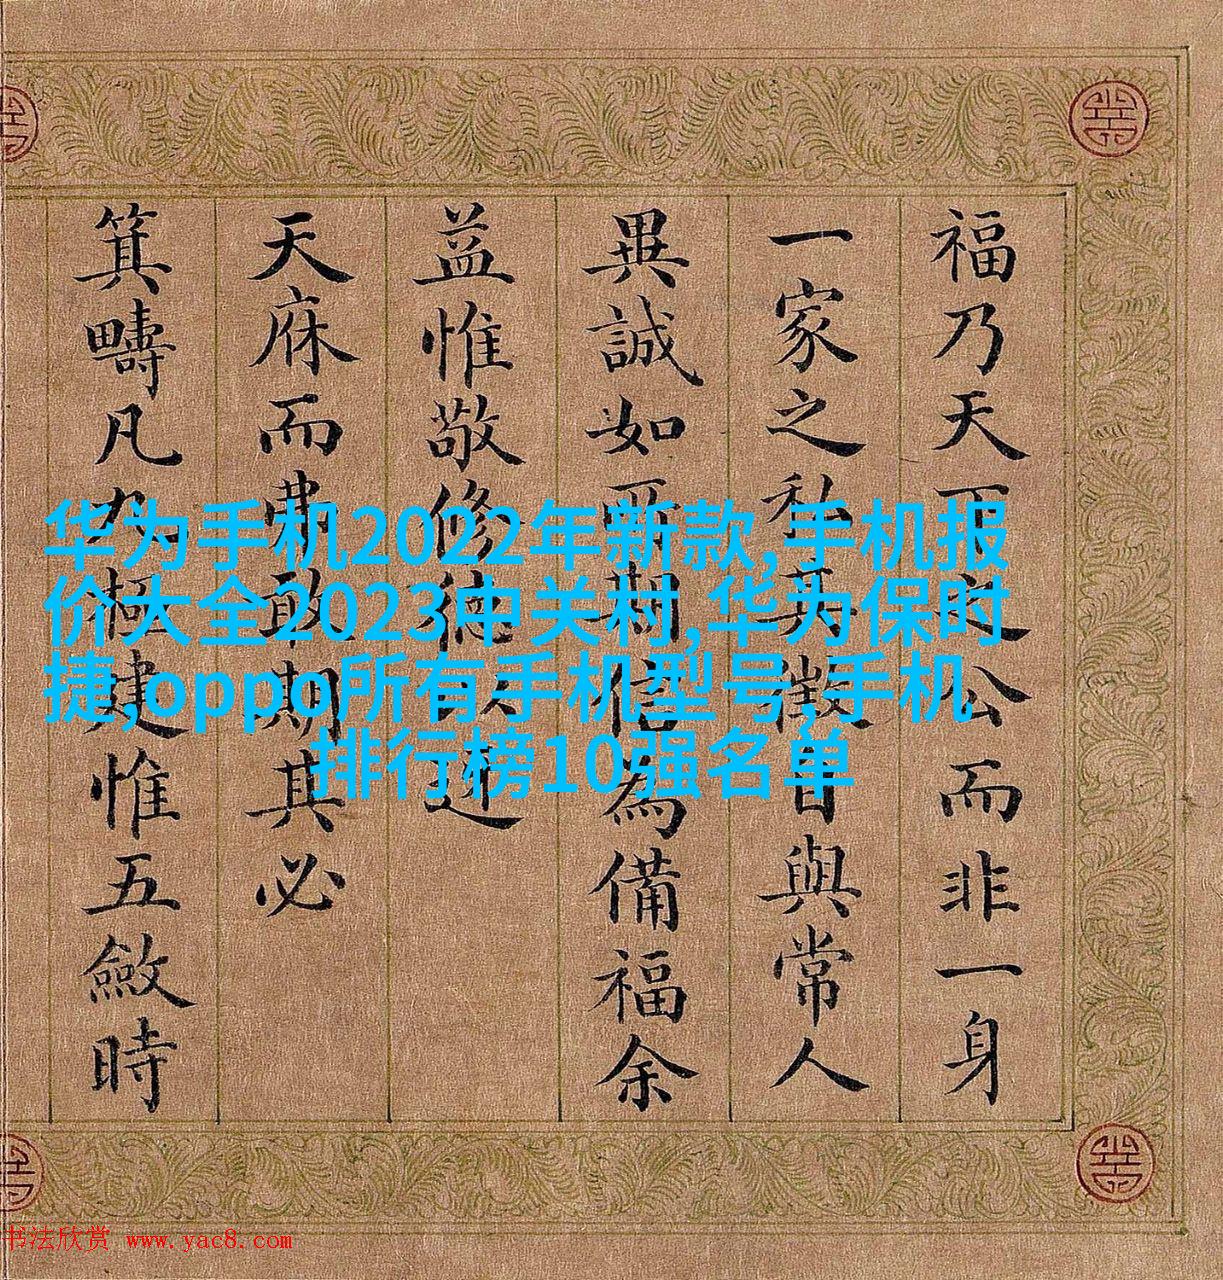 福乃天下之公而非一身
一家之私其徵自與常人
異誠如所期信為備福余
益惟敬修德以迓
天庥而弗敢期其必
箕疇凡九極建惟五斂時
华为手机2022年新款,手机报
价大全2023中关村,华为保时
捷,oppo所有手机型号,手机
排行榜10强名单
书法欣赏 www.yac8.com